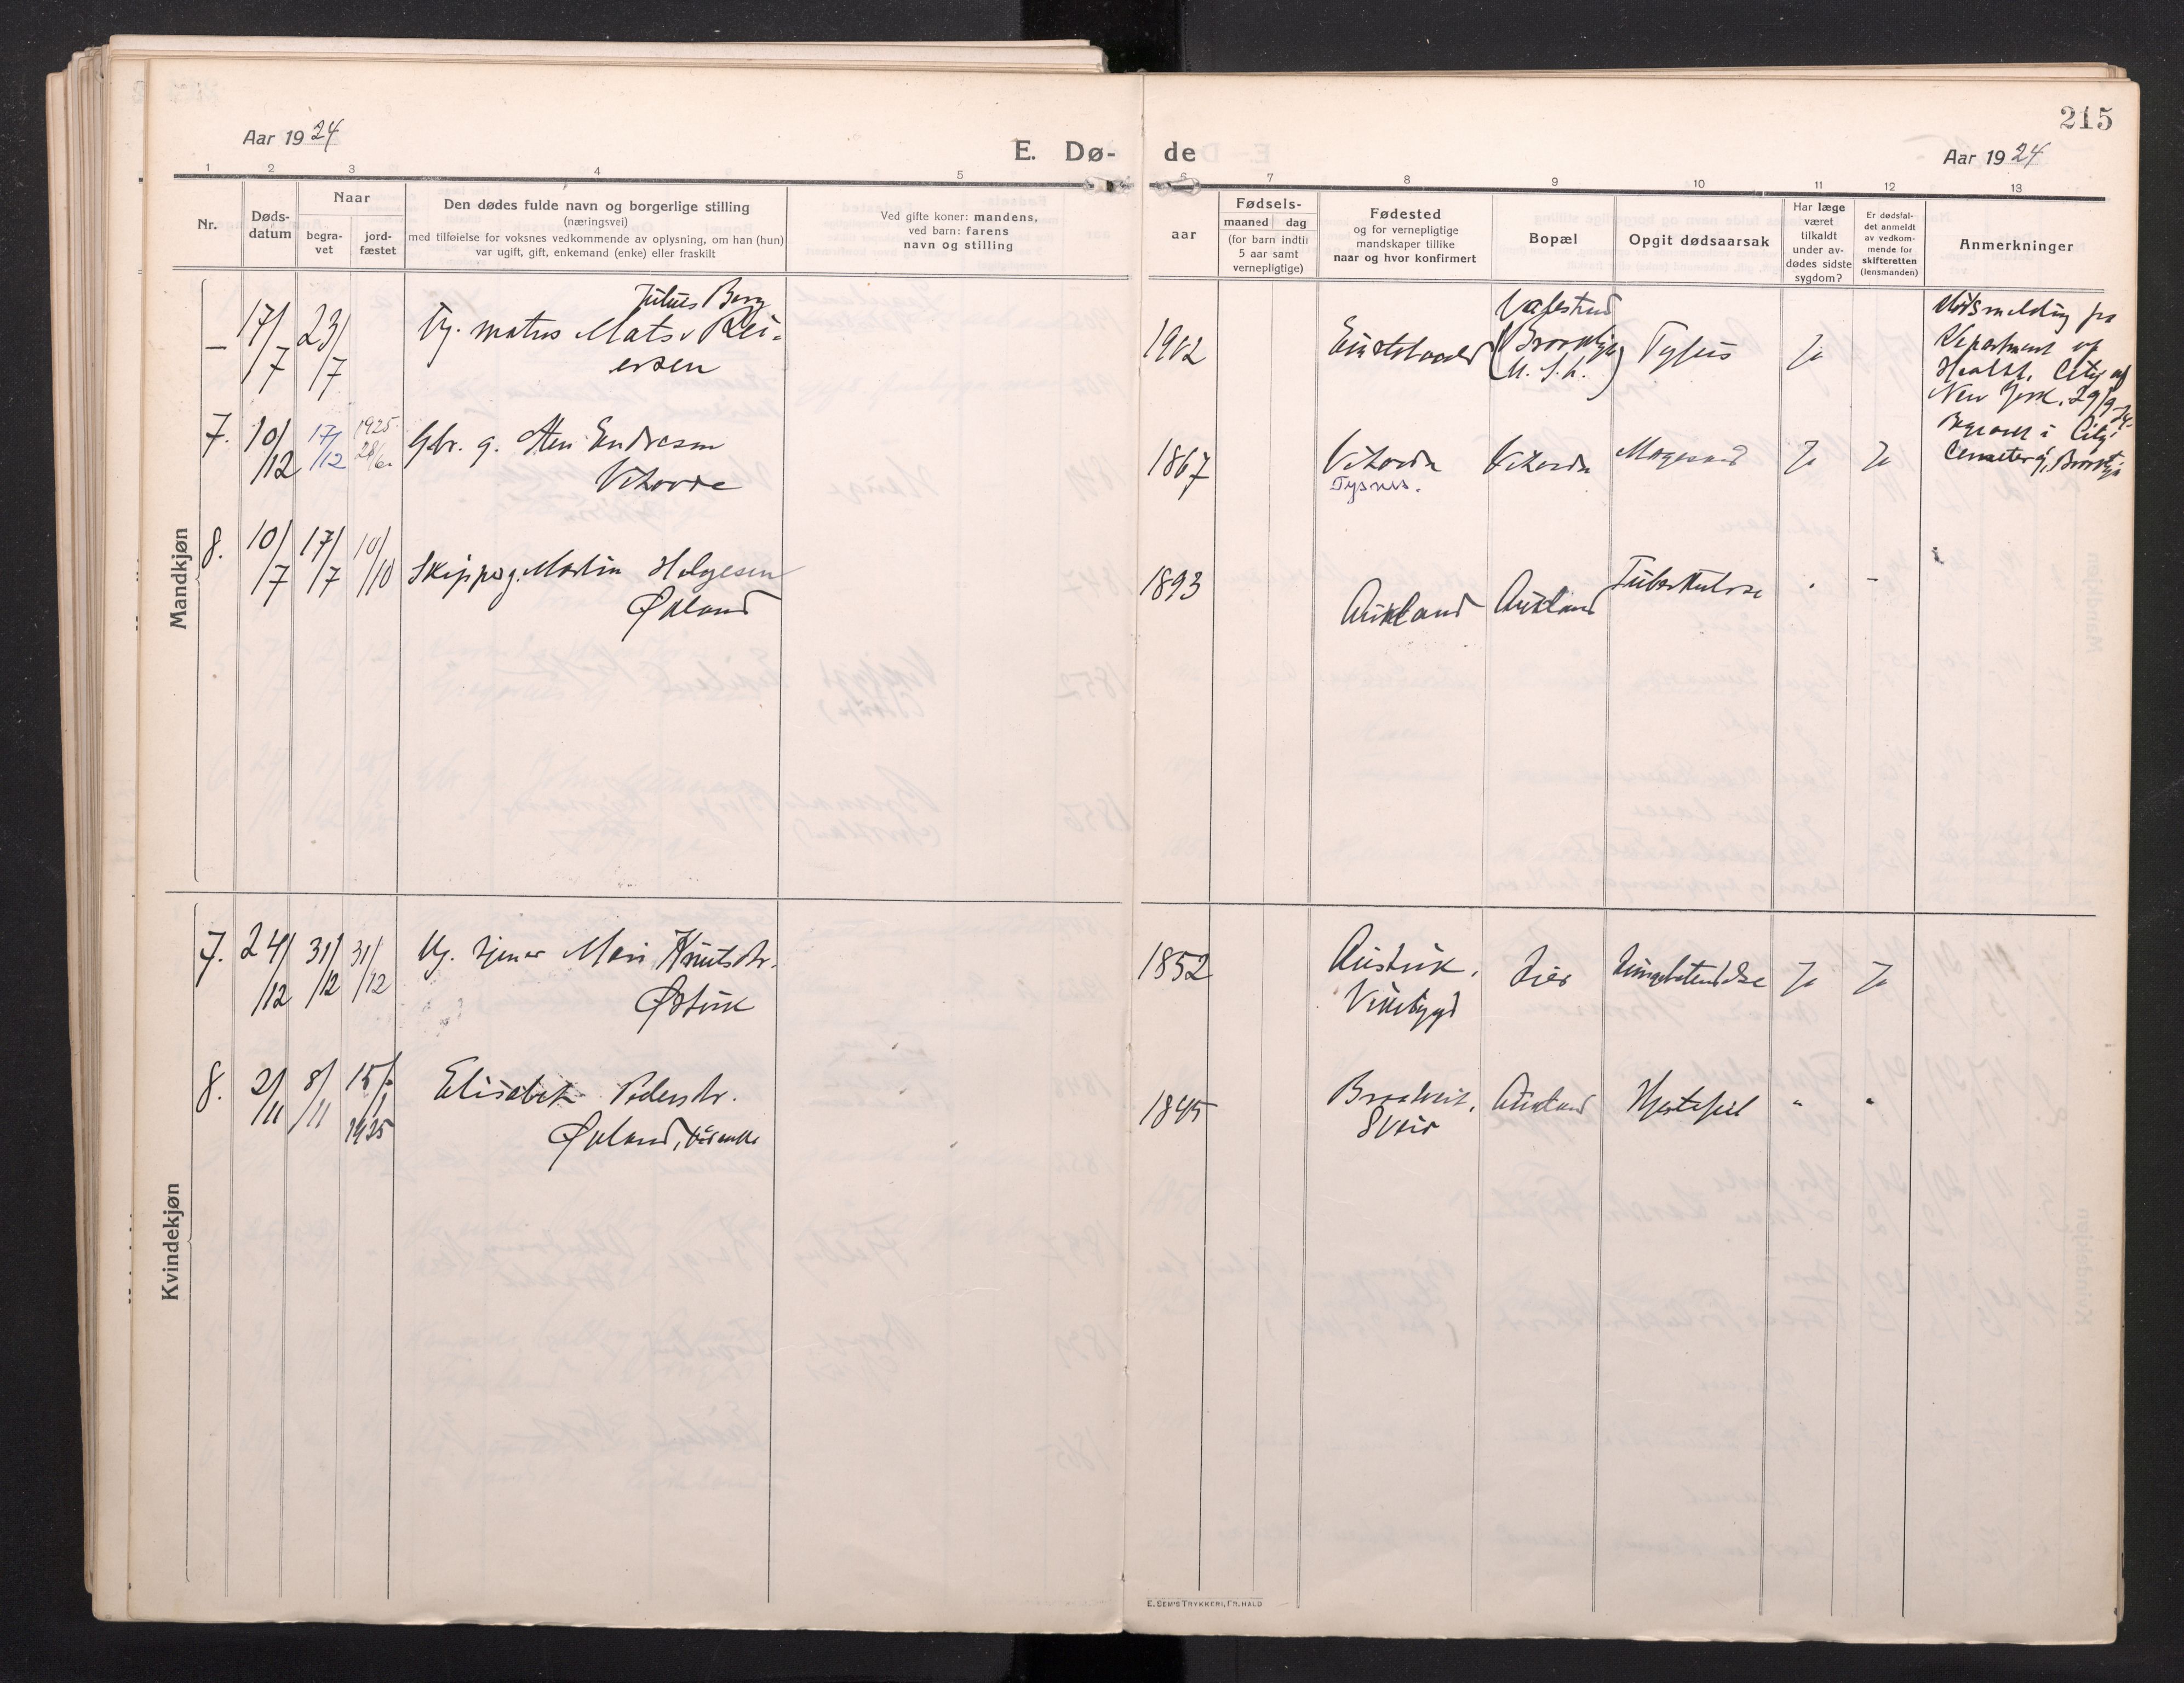 215
Aar 1924
E. Dø-
de
Aar 1924
1 2 3 4 5 6 7 8 9 10 11 12 13
Nr.
Døds-
datum
Naar
begra-
vet
jord-
fæstet
Den dødes fulde navn og borgerlige stilling
(næringsvei)
med tilføielse for voksnes vedkommende av oplysning, om han (hun)
var ugift, gift, enkemand (enke) eller fraskilt
Ved gifte koner: mandens,
ved barn: farens
navn og stilling
aar
Fødsels-
maaned dag
(for barn indtil
5 aar samt
vernepligtige)
Fødested
og for vernepligtige
mandskaper tillike
naar og hvor konfirmert
Bopæl
Opgit dødsaarsak
Har læge
været
tilkaldt
under av-
dødes sidste
sygdom?
Er dødsfal-
det anmeldt
av vedkom-
mende for
skifteretten
(lensmanden)
Anmerkninger
Mandkjøn
– 17/7 23/7 Ug. matros Mats Rei-
Julius Berg
ersen
1902 Valestrand
(Brooklyn
U. S. A.) Tyfus Ja
Dødsmelding fra
Department of
Health, City of
New York, 29/9 24.
Begravet i City
Cemetery, Brooklyn
7. 10/12 17/12 1925 28/6 Gbr. g. Endresen
Vihovde
1867 Vihovda
Tysnes.
Vihovda Mavesaar Ja Ja
8. 10/7 17/7 10/10 Skipper g. Martin Helgesen
Økland
1893 Aukland Aukland Tuberkulose " –
Kvindekjøn
7. 24/12 31/12 31/12 Ug. Mari Knutsdtr.
Østvik
1852 Austvik,
Vikebygd
Lier Lungebetændelse Ja Ja
8. 2/11 8/11 15/1
1925
Elisabet Pedersdtr.
Økland, kårenke
1845 Braatveit,
Sveio
Aukland Hjertefeil " "
E. SEM'S TRYKKERI, FR. HALD